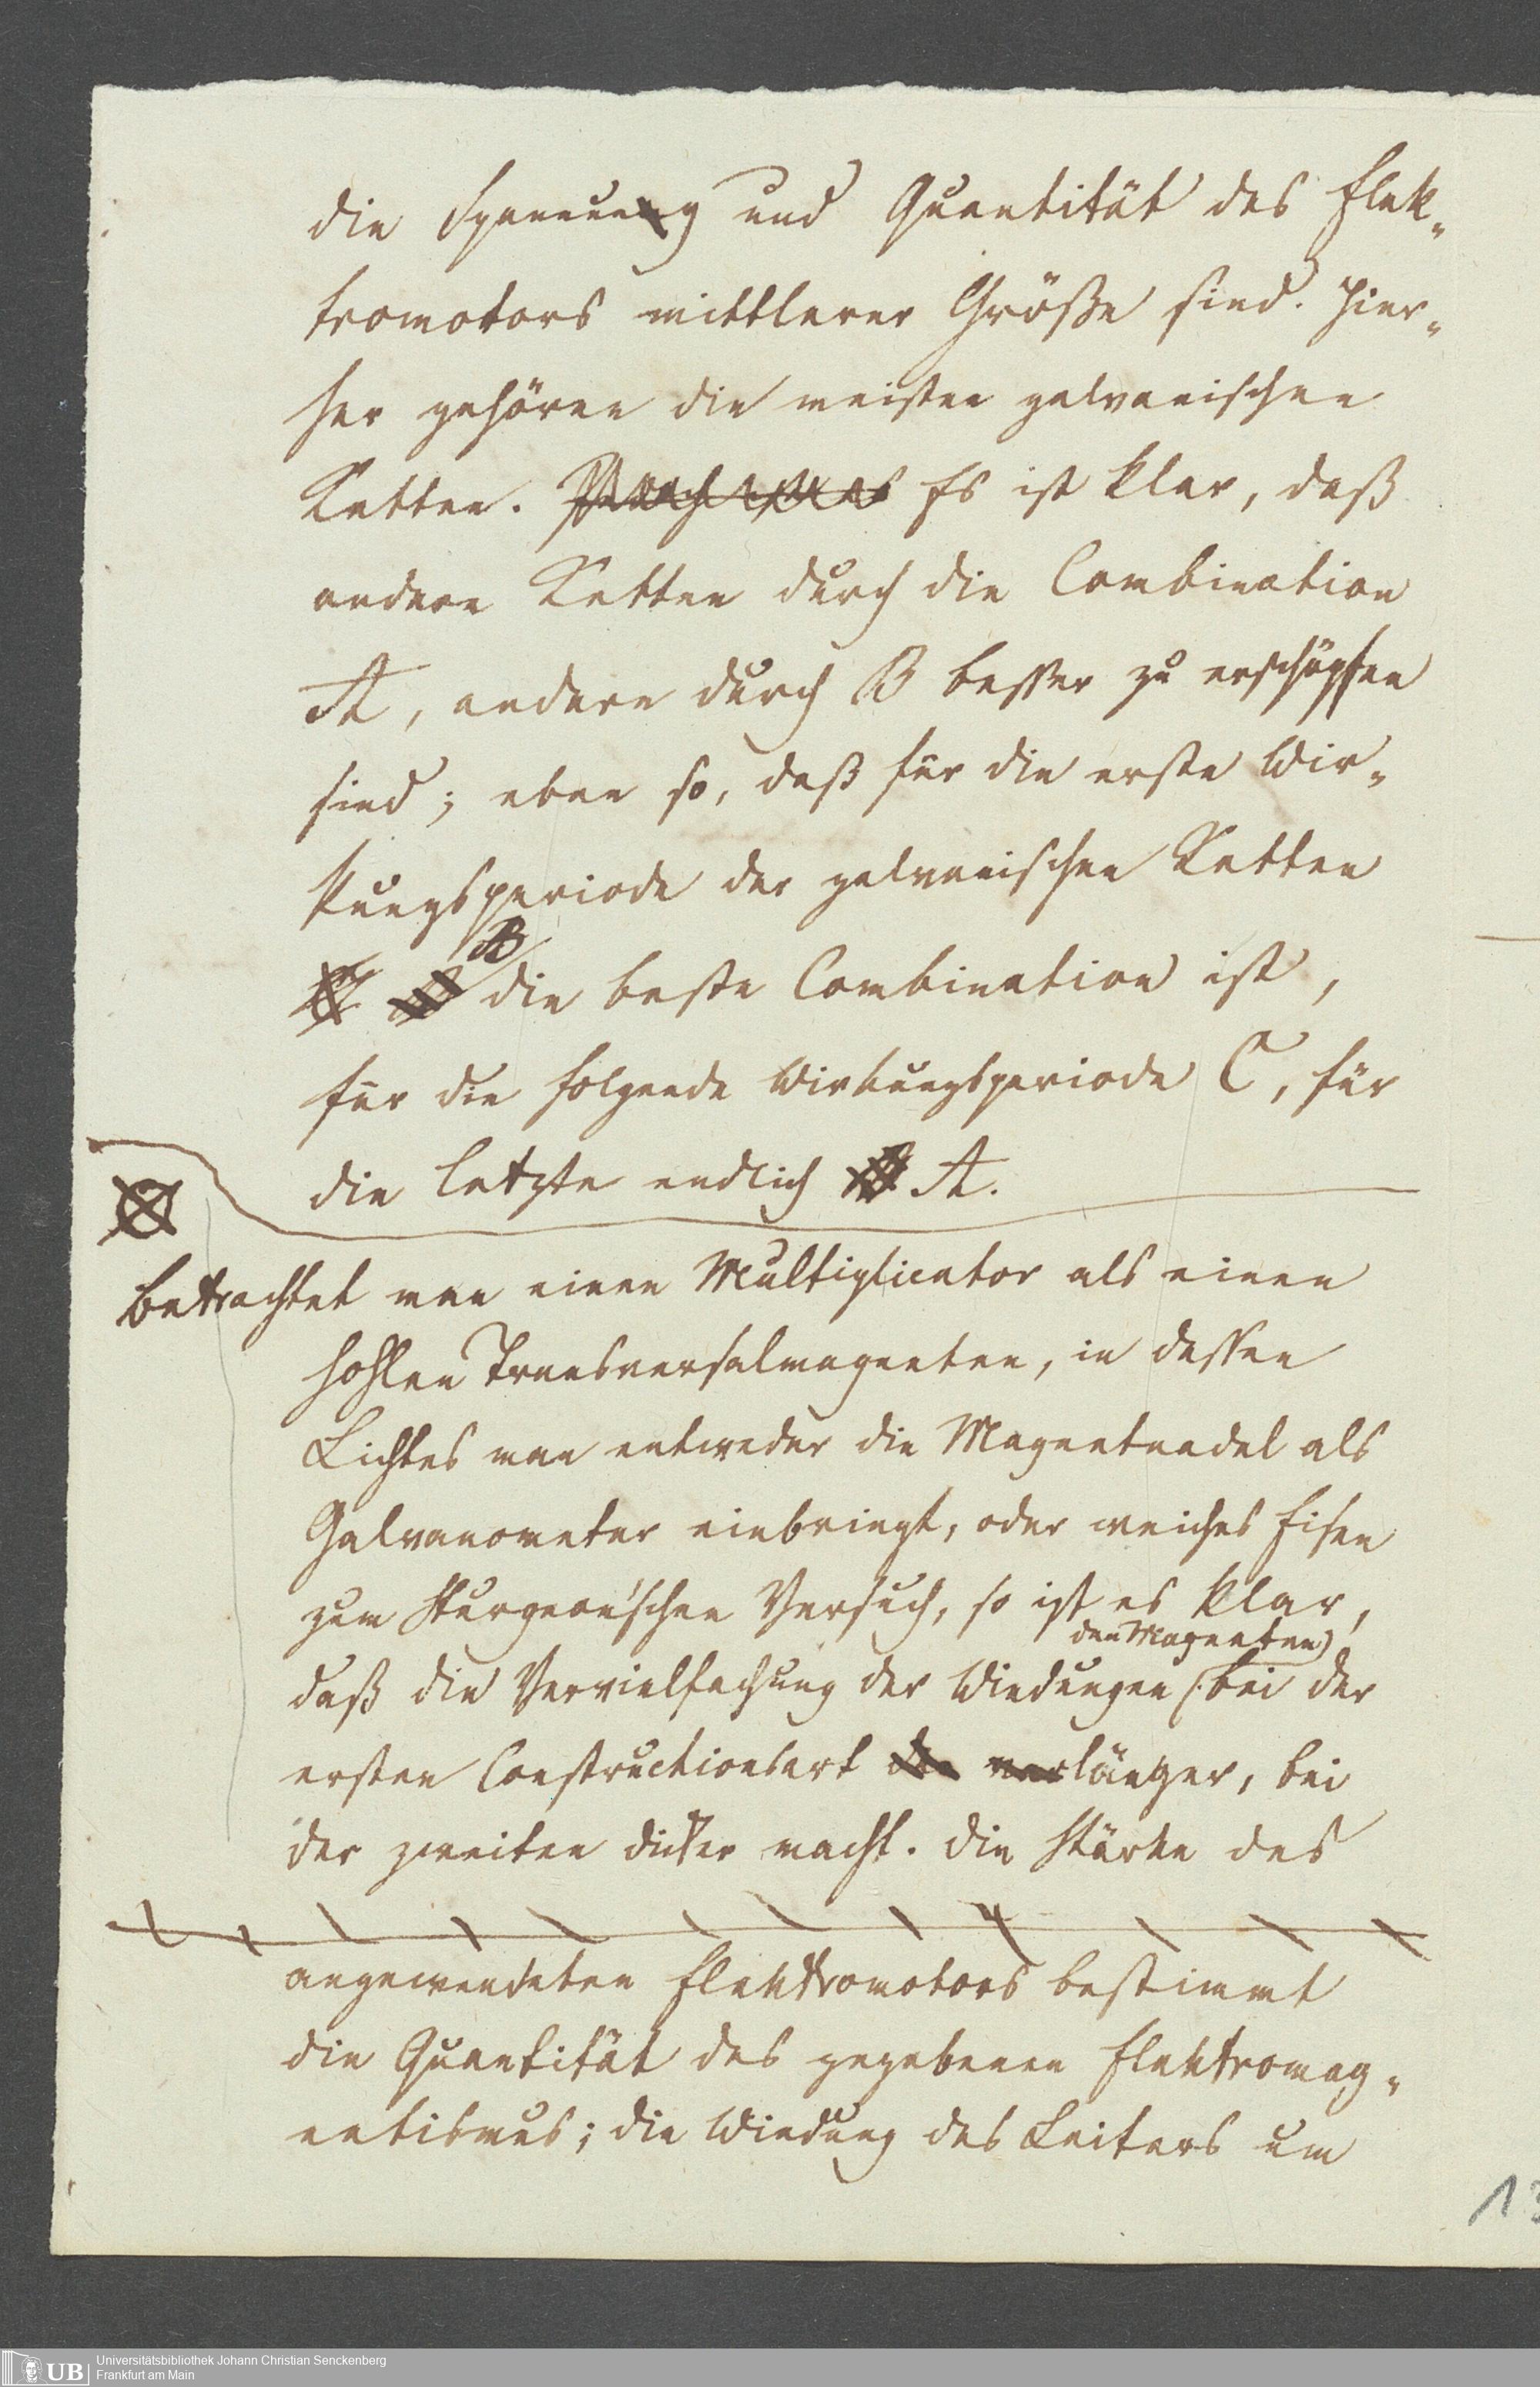 die Spannung und Quantität des Elek-
tromotors mittlerer Größe sind. Hier-
her gehören die meisten galvanischen
Ketten. Es ist klar, daß
andere Ketten durch die Combination
A, andere durch B besser zu erschöpfen
sind; eben so, daß für die erste Wir-
kungsperiode der galvanischen Ketten
B
die beste Combination ist,
für die folgende Wirkungsperiode C, für
die letzte endlich A.
Betrachtet man einen Multiplicator als einen
hohlen Transversalmagneten, in dessen
Lichtes man entweder die Magnetnadel als
Galvanometer einbringt, oder weiches Eisen
zum Sturgeon'schen Versuch, so ist es klar,
den Magneten
daß die Vervielfachung der Windungen bei der
ersten Constructionsart länger, bei
der zweiten dicker macht. Die Stärke des
angewendeten Elektromotors bestimmt
die Quantität des gegebenen Elektromag-
netismus; die Windung des Leiters um
13
UB
Universitätsbibliothek Johann Christian Senckenberg
Frankfurt am Main